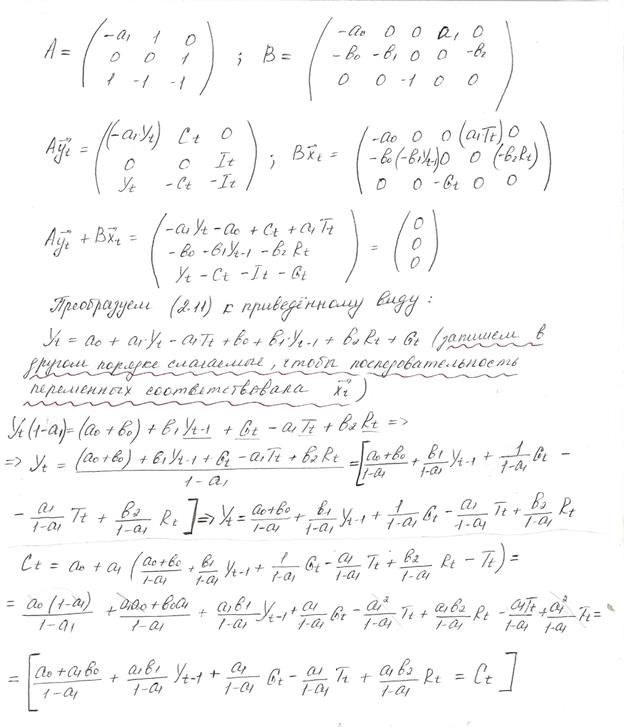 A = ( -a₁ 1 0 ; 0 0 1 ; 1 -1 -1 ) ; B = ( -a₀ 0 0 a₁ 0 ; -b₀ -b₁ 0 0 -b₂ ; 0 0 -1 0 0 )
Ay⃗t = ( (-a₁Yt) Ct 0 ; 0 0 It ; Yt -Ct -It ) ; Bx⃗t = ( -a₀ 0 0 (a₁Tt) 0 ; -b₀ (-b₁Yt-1) 0 0 (-b₂Rt) ; 0 0 -Gt 0 0 )
Ay⃗t + Bx⃗t = ( -a₁Yt - a₀ + Ct + a₁Tt ; -b₀ - b₁Yt-1 - b₂Rt ; Yt - Ct - It - Gt ) = ( 0 ; 0 ; 0 )
Преобразуем (2.11) к приведённому виду :
Yt = a₀ + a₁Yt - a₁Tt + b₀ + b₁Yt-1 + b₂Rt + Gt (запишем в
другом порядке слагаемые, чтобы последовательность
переменных соответствовала x⃗t)
Yt(1-a₁) = (a₀ + b₀) + b₁Yt-1 + Gt - a₁Tt + b₂Rt =>
=> Yt = ((a₀+b₀) + b₁Yt-1 + Gt - a₁Tt + b₂Rt)/(1-a₁) = [(a₀+b₀)/(1-a₁) + b₁/(1-a₁) Yt-1 + 1/(1-a₁) Gt -
- a₁/(1-a₁) Tt + b₂/(1-a₁) Rt] => Yt = (a₀+b₀)/(1-a₁) + b₁/(1-a₁) Yt-1 + 1/(1-a₁) Gt - a₁/(1-a₁) Tt + b₂/(1-a₁) Rt
Ct = a₀ + a₁ ((a₀+b₀)/(1-a₁) + b₁/(1-a₁) Yt-1 + 1/(1-a₁) Gt - a₁/(1-a₁) Tt + b₂/(1-a₁) Rt - Tt) =
= a₀(1-a₁)/(1-a₁) + (a₁a₀+b₀a₁)/(1-a₁) + a₁b₁/(1-a₁) Yt-1 + a₁/(1-a₁) Gt - a₁²/(1-a₁) Tt + a₁b₂/(1-a₁) Rt - a₁Tt/(1-a₁) + a₁²/(1-a₁) Tt =
= [(a₀+a₁b₀)/(1-a₁) + a₁b₁/(1-a₁) Yt-1 + a₁/(1-a₁) Gt - a₁/(1-a₁) Tt + a₁b₂/(1-a₁) Rt = Ct]